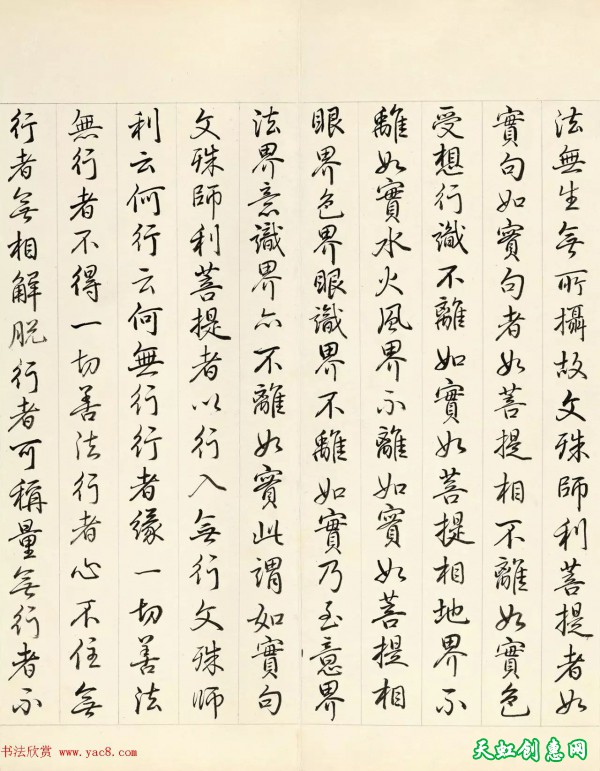 法無生無所攝故文殊師利菩提者如
實句如實句者如菩提相不離如實色
受想行識不離如實如菩提相地界不
離如實水火風界不離如實如菩提相
眼界色界眼識界不離如實乃至意界
法界意識界亦不離如實此謂如實句
文殊師利菩提者以行入無行文殊師
利云何行云何無行行者緣一切善法
無行者不得一切善法行者心不住無
行者無相解脱行者可稱量無行者不
书法欣赏 www.yac8.com
天虹创惠网